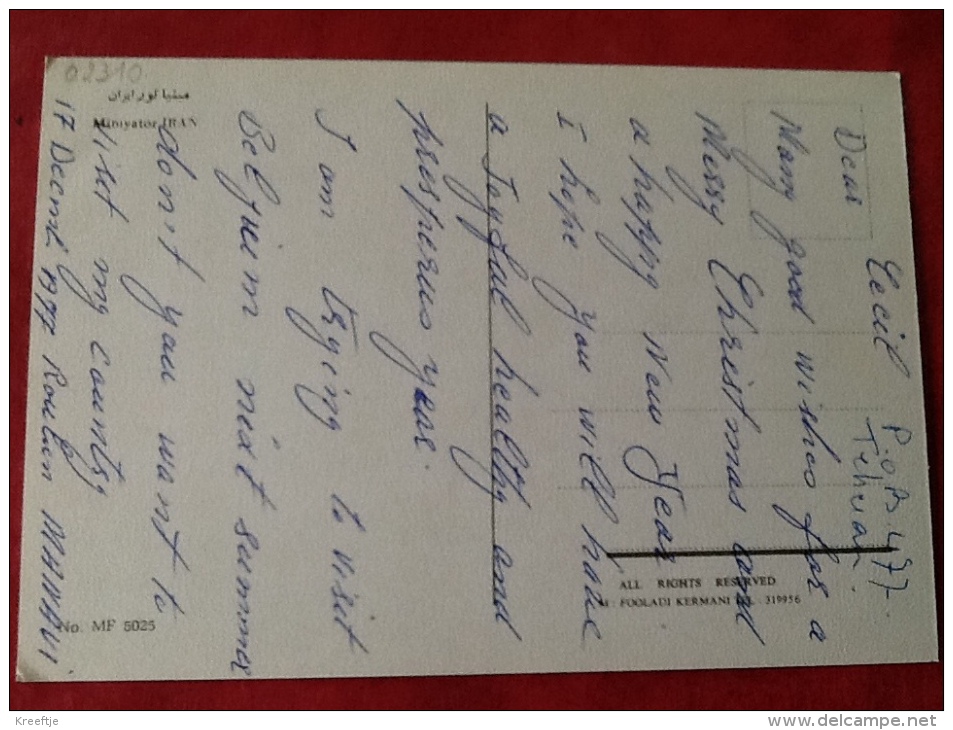 02310
مینیاتور ایران
Miniyator IRAN
P.O.B. 477.
Tehran.
Dear Cecil
Many good wishos for a
Merry Christmas and
a happy New Year.
I hope you will have
a Joyful healthy and
presperus year.
I am trying to visit
Belgieum nixt summer
don,t you want to
viset my country
17 Decmb 1977
ALL RIGHTS RESERVED
M: FOOLADI KERMANI TEL. 319956
No. MF 5025
Kreeftje
www.delcampe.net